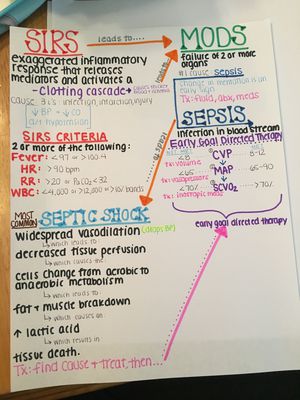 SIRS
leads to....
exaggerated inflammatory
response that releases
mediators and activates a
-clotting cascade-
cause: 3 i's: infection, infarction, injury
↓BP + ↓CO
hypotension
SIRS CRITERIA
2 or more of the following:
Fever: <97 or >100.4
HR: >90 bpm
RR: >20 or PaCO2 <32
WBC: <4,000 or >12,000 or >10% bands
MODS
failure of 2 or more
organs
#1 cause sepsis
Change in mentation is an
early sign
Tx: fluid, abx, meds
leads to
SEPSIS
infection in blood stream
Early Goal Directed Therapy
<8 CVP 8-12
Tx: volume
<65 MAP 65-90
Tx: vasopressors
<70% SCVO2 >70%
Tx: inotropic meds
early goal directed therapy
MOST
COMMON
SEPTIC SHOCK
widespread vasodilation (drops BP)
↳ which leads to
decreased tissue perfusion
↳ which causes the
cells change from aerobic to
anaerobic metabolism
↳ which leads to
fat + muscle breakdown
↳ which causes an
↑ lactic acid
↳ which results in
tissue death.
Tx: find cause + treat, then...